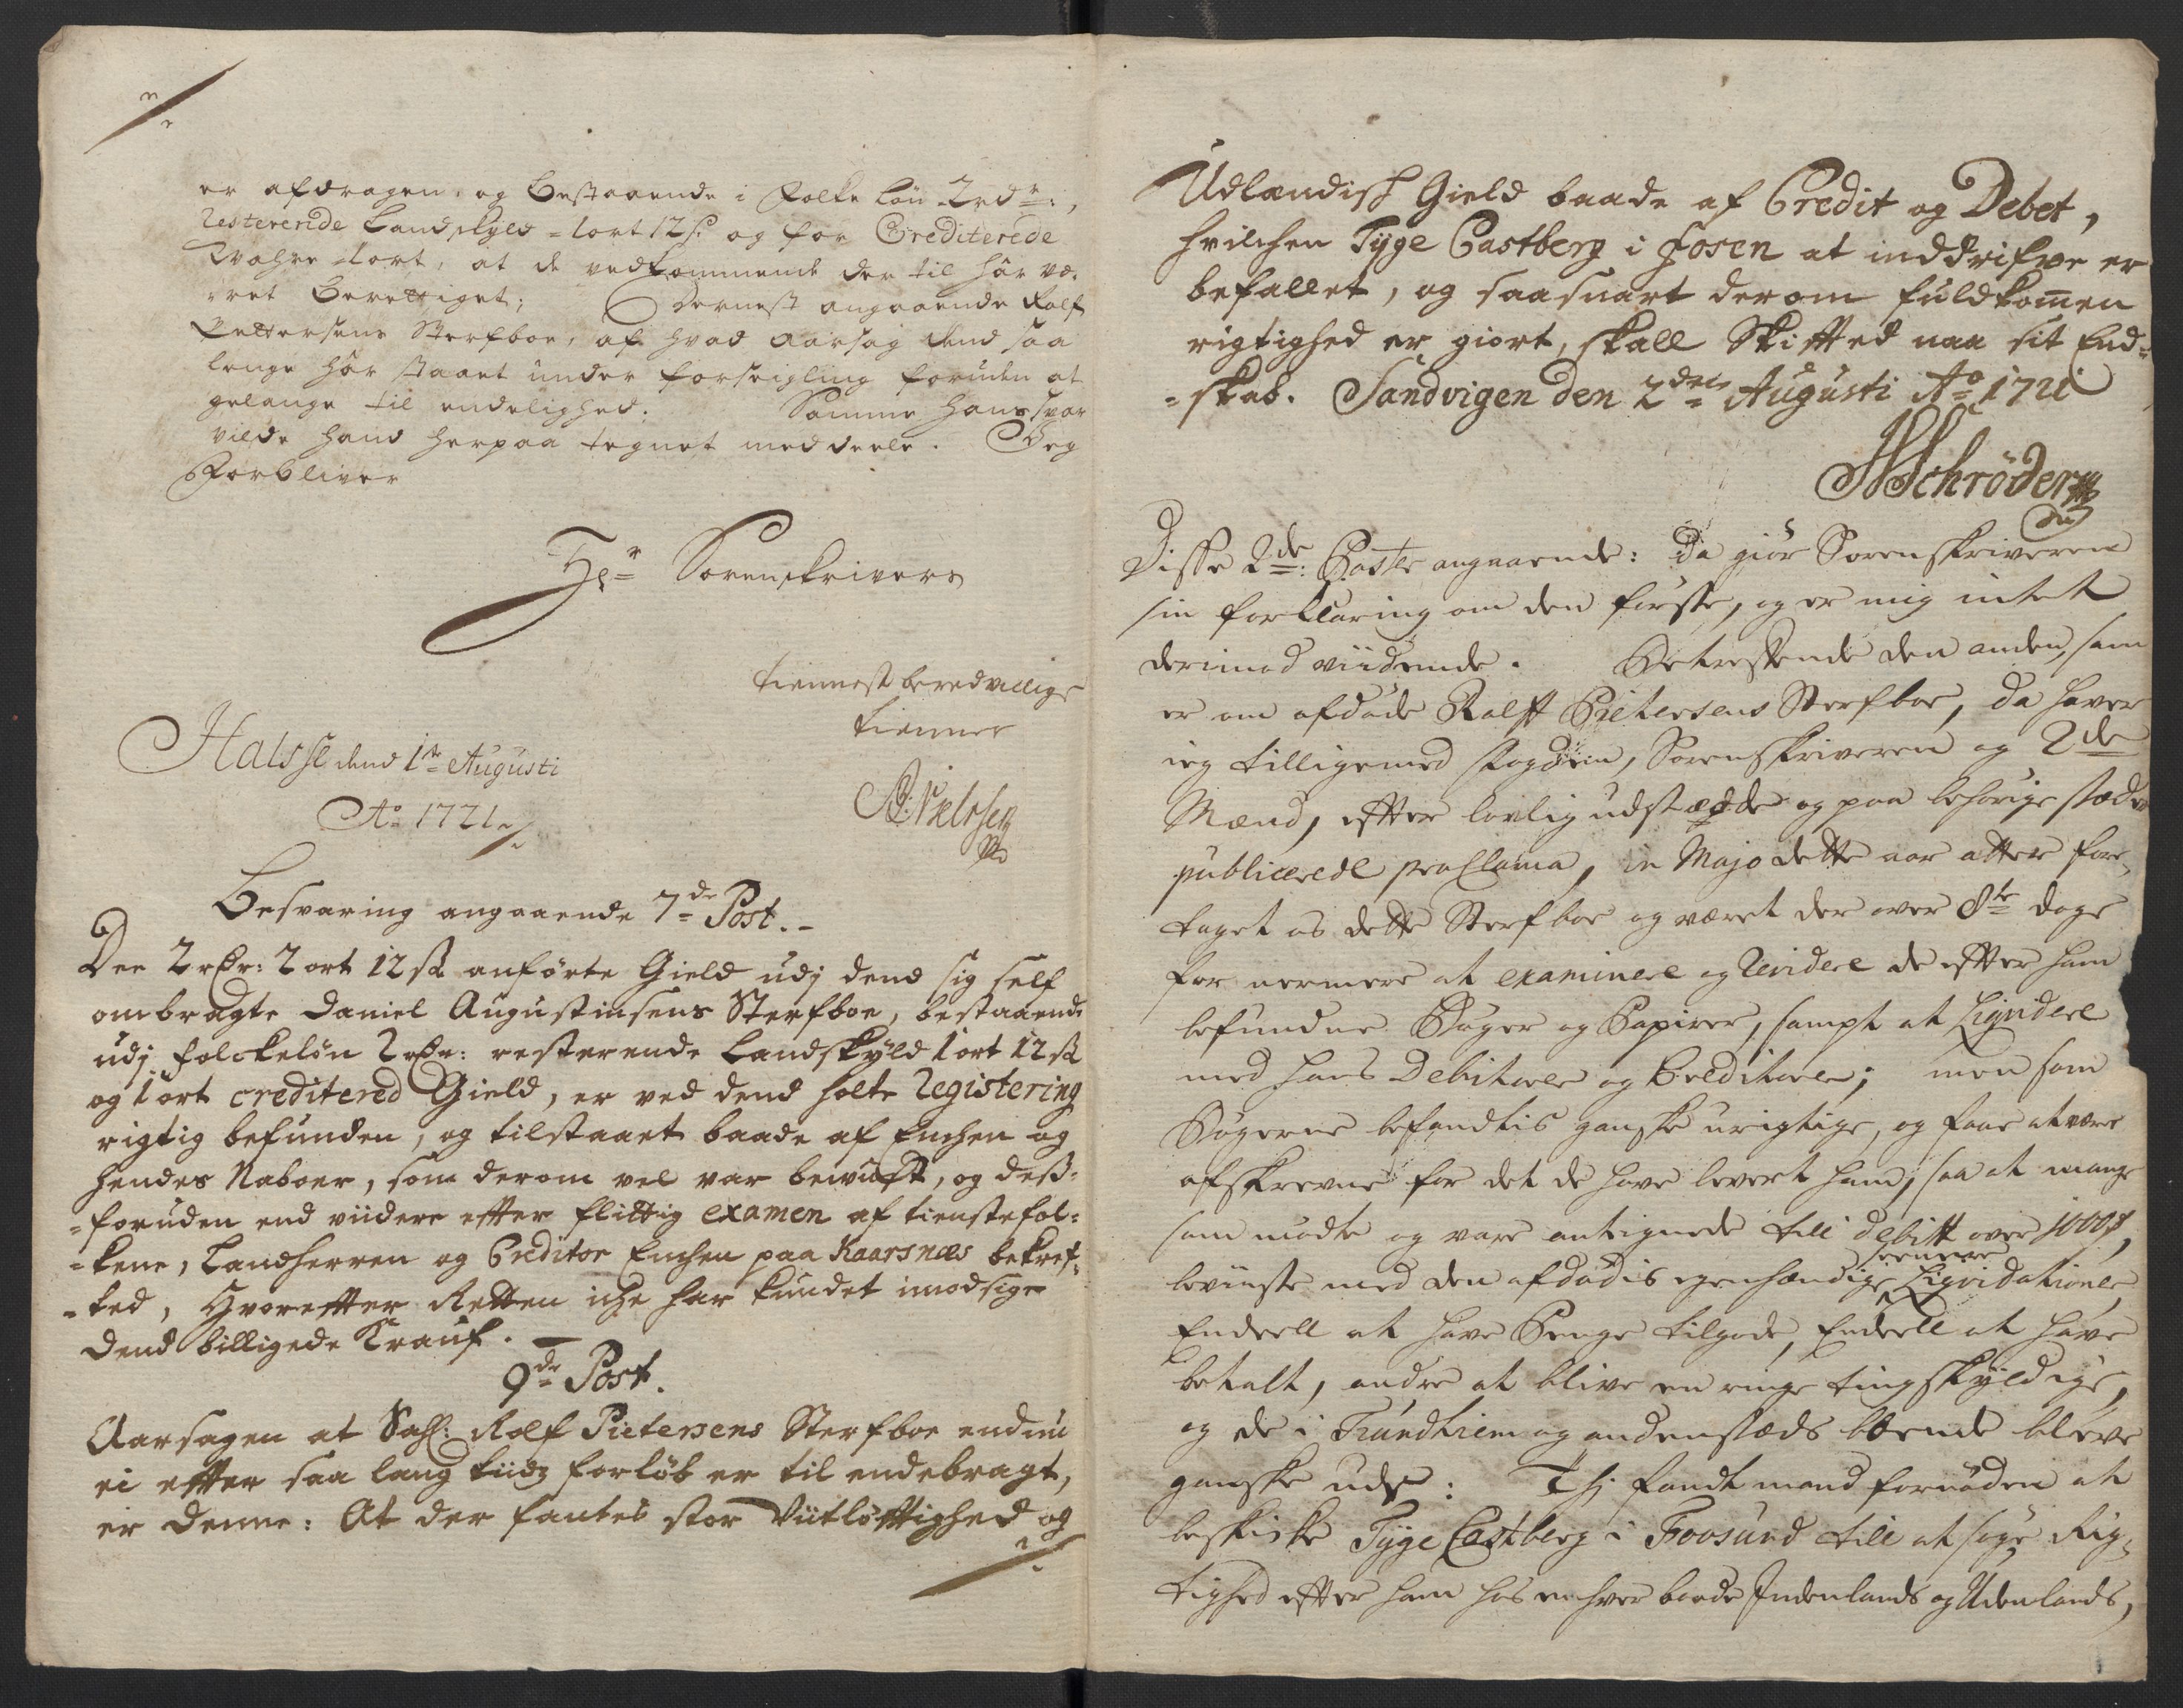 er afdragen, og bestaaende i Folke løn 2 rdr:,
Resterende Landskyld - 1 ort 12 s. og for Crediterede
Wahre 1 ort, at de vedkommende der til har væ-
-ret Berettiget; Dernest angaaende Rolf
Pettersens Sterfboe, af hvad Aarsag dend saa
lenge har staaet under forseigling foruden at
gelange til endelighed. Samme hans svar
vilde hand herpaa tegnet meddeele. Jeg
Forbliver
Hr Sorenskrivers
tiennest beredvillige
tienner
Halsse dend 1te Augusti
Ao 1721
Besvaring angaaende 7de Post.-
Dee 2 rdr: 2 ort 12 sk anførte Gield udj dend sig self
ombragte Daniel Augustinsens Sterfboe, bestaaende
udj folckeløn 2 rdr: resterende Landskyld 1 ort 12 sk
og 1 ort creditered Gield, er ved dend holte Registering
rigtig befunden, og tilstaaet baade af Enchen og
hendes Naboer, som derom vel var bewust, og dess-
-foruden end viidere efter flittig examen af tienstefol-
-kene, Landherren og Creditor Enchen paa Kaarsnæs bekref-
-ted, Hvorefter Retten iche har kundet imodsige
dend billigede Krauf.
9de Post.
Aarsagen at Sahl: Rolf Pietersens Sterfboe endnu
ei efter saa lang tiids forløb er til endebragt,
er denne: At der fantes stor Viitløftighed og
Udlændish Gield baade af Credit og Debet,
hvilchen Tyge Castberg i Fosen at inddrifve er
befallet, og saasnart derom fuldkomen
rigtighed er giort, skall Skifted naa sit End-
-skab. Sandvigen den 2den Augusti Ao 1721
Schrøder
Disse 2de: Poster angaaende: da giør Sorenskriveren
sin forklaring om den første, og er mig intet
derimod viidende. Betreffende den anden, som
er om afdøde Rolff Pietersens Sterfboe, da haver
ieg tilligemed fogden, Sorenskriveren og 2de
Mænd, efter lovlig udstædde og paa behørige stæder
publicerede proclama, in Majo dette aar atter fore-
taget os dette Sterfboe og været der over 8te dage
for nermere at examinere og Revidere de efter ham
befundne Bøger og Papirer, sampt at Liqvidere
med hans Debitorer og Creditorer; men som
Bøgerne befandtis ganske urigtige, og faae at være
afskrevne for det de have levert ham, saa at mange
som mødte og vare antegnede till debitt over 1000 rd,
beviiste med den afdødis egenhændige seenere Liqvidationer
Endeell at have Penge tilgode, Endeell at have
betalt, andre at blive en ringe ting skyldige,
og de i Trundhiem og andenstæds boende bleve
ganske ude: Thj fandt mand fornøden at
beskicke Tyge Castberg i Foosund till at søge Rig-
tighed efter ham hos en hver baade Indenlands og Udenlands,